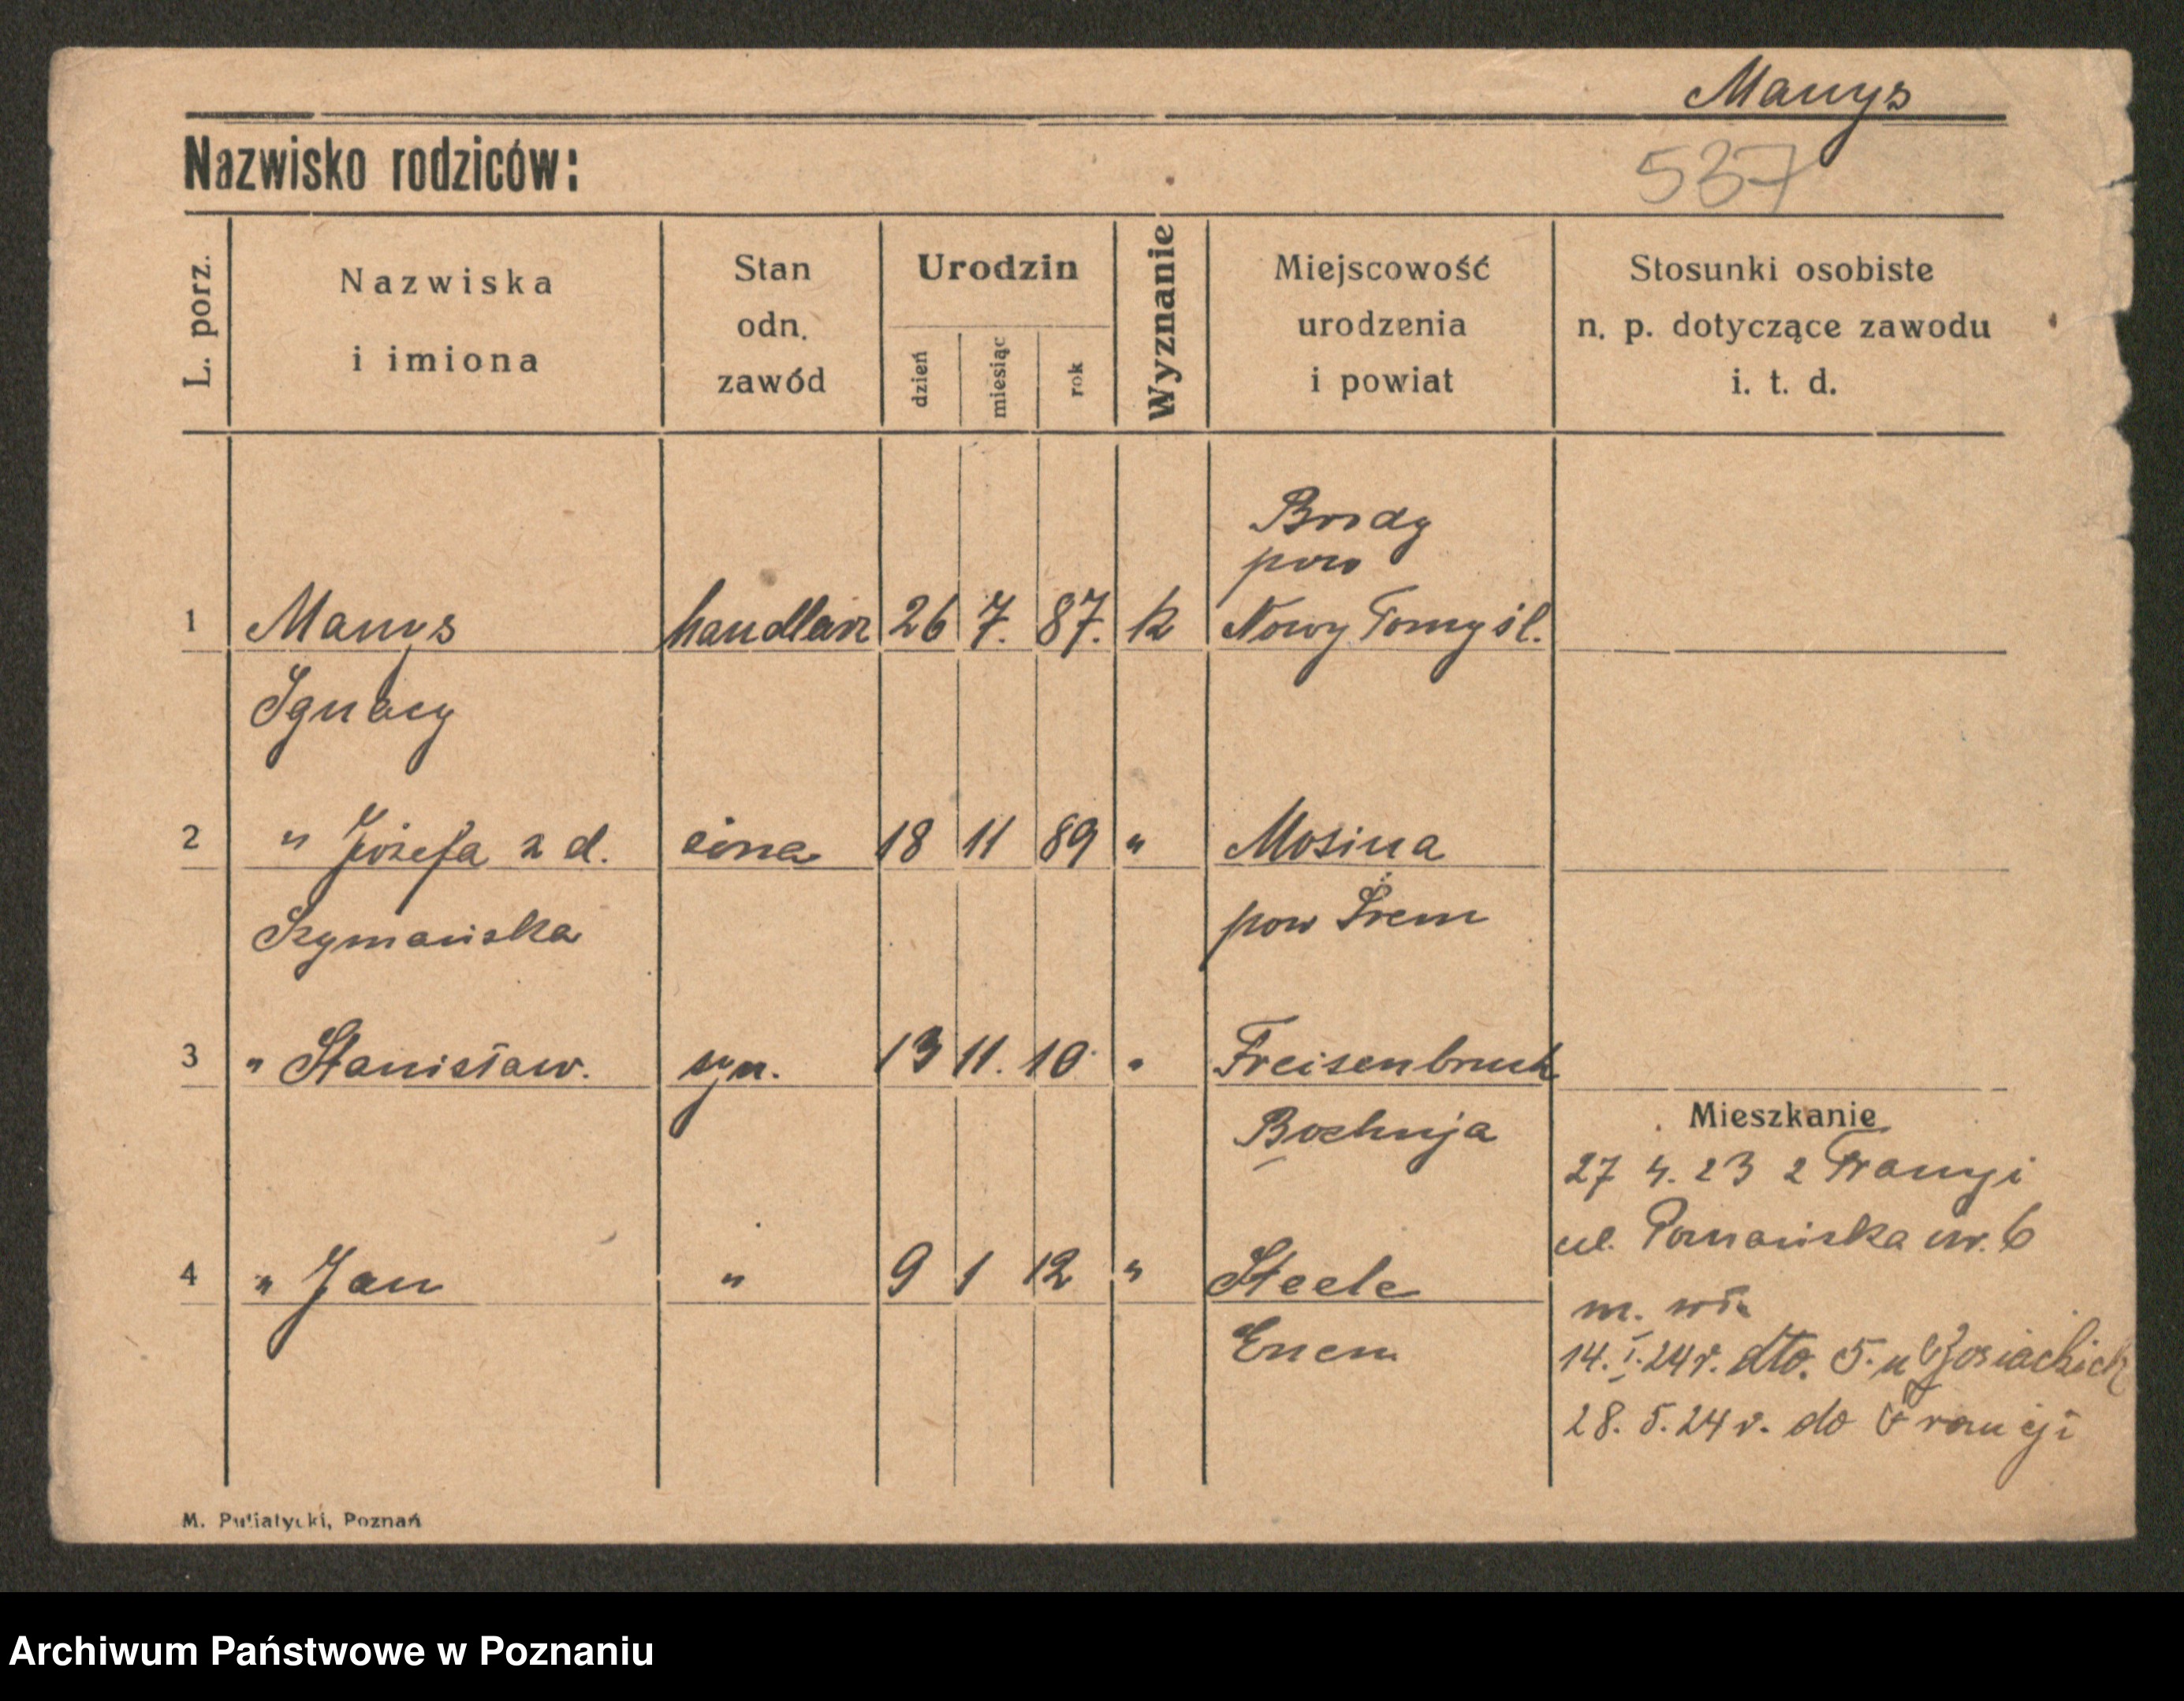 Manys
Nazwisko rodziców:
537
L. porz.
Nazwiska
i imiona
Stan
odn.
zawód
Urodzin
dzień
miesiąc
rok
Wyznanie
Miejscowość
urodzenia
i powiat
Stosunki osobiste
n. p. dotyczące zawodu
i. t. d.
Brody
pow
1 Manys handlarz 26 7. 87. k Nowy Tomyśl.
Ignacy
2 " Józefa z d. żona 18 11 89 " Mosina
Szymańska pow Śrem
3 " Stanisław. syn. 13 11. 10. " Freisenbruch
Mieszkanie
Bochnja
27 4. 23 z Francji
ul. Poznańska nr. 6
4 " Jan " 9 1 12 " Steele
m. wł.
Essen
14. I. 24 r. dto. 5. u
28. 5. 24 r. do Francji
M. Putiatycki, Poznań
Archiwum Państwowe w Poznaniu